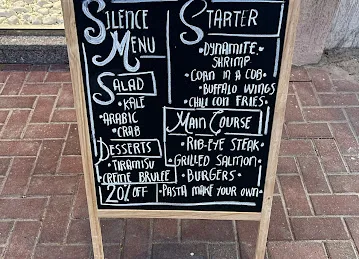 SILENCE
MENU
SALAD
• KALE
• ARABIC
• CRAB
DESSERTS
• TIRAMISU
• CREME BRULEE
20% OFF
STARTER
• DYNAMITE •
SHRIMP
• CORN IN A COB •
• BUFFALO WINGS
• CHILI CON FRIES •
MAIN COURSE
• RIB-EYE STEAK •
• GRILLED SALMON •
• BURGERS •
• PASTA MAKE YOUR OWN •